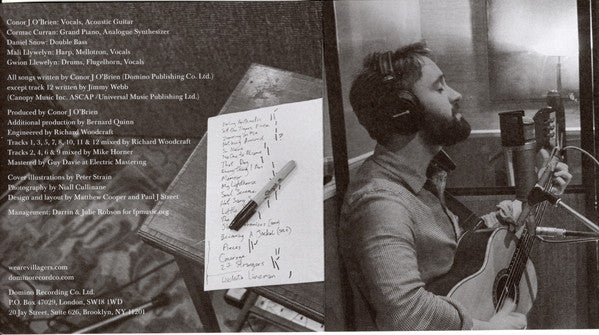 Conor J O'Brien: Vocals, Acoustic Guitar
Cormac Curran: Grand Piano, Analogue Synthesizer
Danny Snow: Double Bass
Mali Llywelyn: Harp, Mellotron, Vocals
Gwion Llewelyn: Drums, Flugelhorn, Vocals
All songs written by Conor J O'Brien (Domino Publishing Co. Ltd.)
except track 12 written by Jimmy Webb
(Canopy Music Inc. ASCAP /Universal Music Publishing Ltd.)
Produced by Conor J O'Brien
Additional production by Bernard Quinn
Engineered by Richard Woodcraft
Tracks 1, 3, 5, 7, 8, 10, 11 & 12 mixed by Richard Woodcraft
Tracks 2, 4, 6 & 9 mixed by Mike Horner
Mastered by Guy Davie at Electric Mastering
Cover illustrations by Peter Strain
Photography by Niall Cullinane
Design and layout by Matthew Cooper and Paul J Street
Management: Darrin & Julie Robson for lpmusic.org
wearevillagers.com
dominorecordco.com
Domino Recording Co. Ltd.
P.O. Box 47029, London, SW18 1WD
20 Jay Street, Suite 626, Brooklyn, NY 11201
That Day
Memoir
My Lighthouse
Soul Serene
Hot Scary
Little
The
Becoming A Jackal
Pieces
Courage
27 Strangers
Wichita Lineman